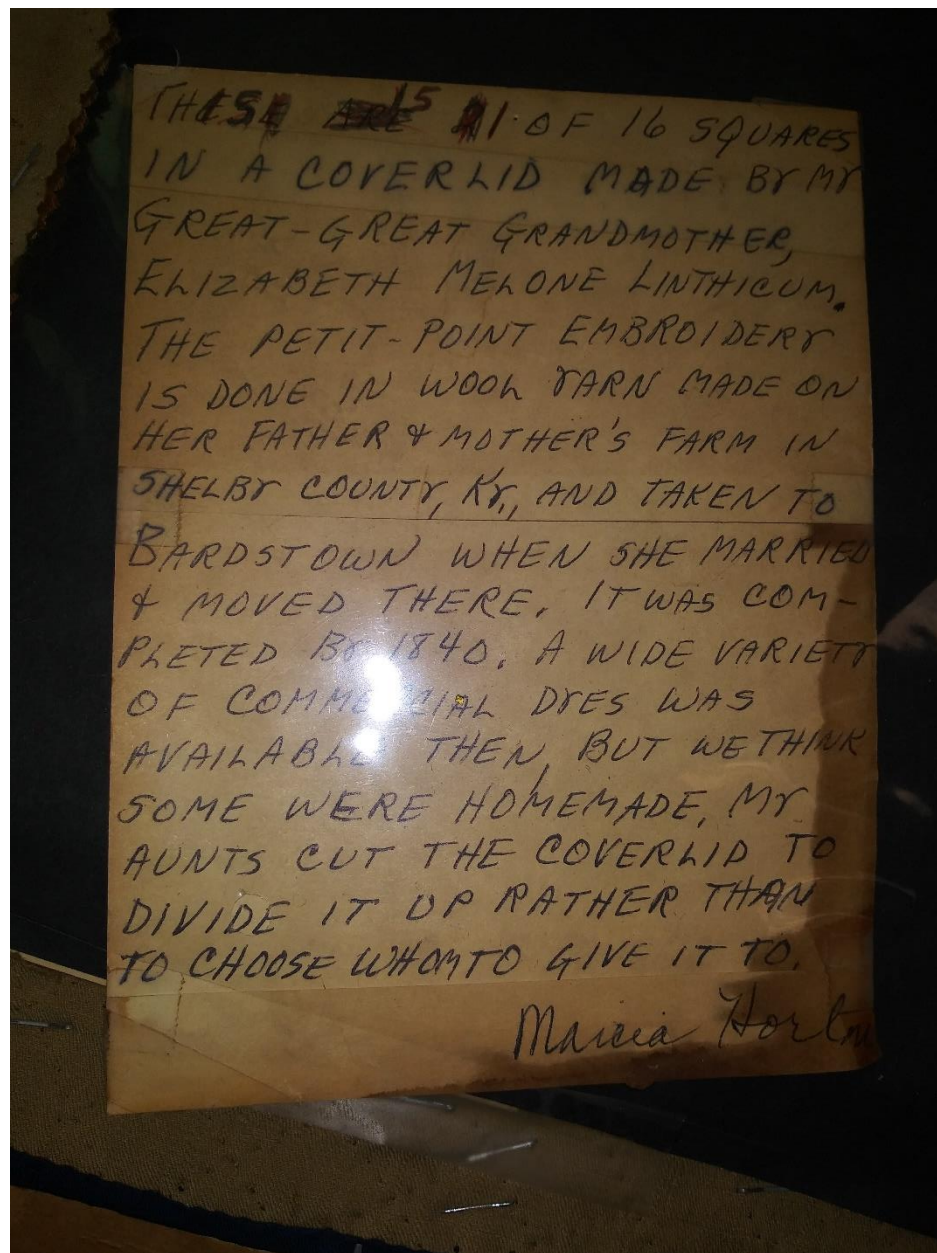 THIS IS 1 OF 16 SQUARES
IN A COVERLID MADE BY MY
GREAT-GREAT GRANDMOTHER,
ELIZABETH MELONE LINTHICUM.
THE PETIT-POINT EMBROIDERY
IS DONE IN WOOL YARN MADE ON
HER FATHER & MOTHER'S FARM IN
SHELBY COUNTY, KY., AND TAKEN TO
BARDSTOWN WHEN SHE MARRIED
& MOVED THERE. IT WAS COM-
PLETED BY 1840. A WIDE VARIETY
OF COMMERCIAL DYES WAS
AVAILABLE THEN, BUT WE THINK
SOME WERE HOMEMADE. MY
AUNTS CUT THE COVERLID TO
DIVIDE IT UP RATHER THAN
TO CHOOSE WHOM TO GIVE IT TO.
Marcia Horton